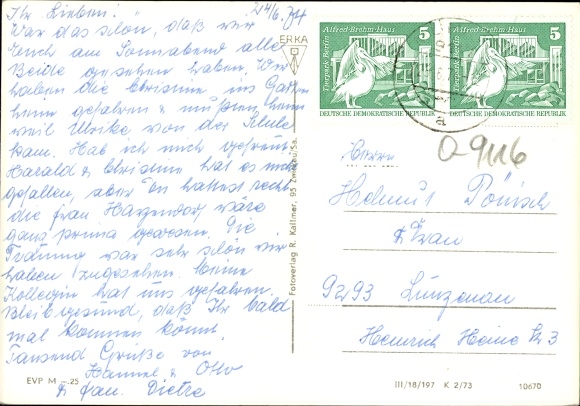 Ihr Lieben! 24/6.74
War das schön, daß wir
Euch am Sonnabend alle
Beide gesehen haben. Wir
haben die Christine ins
heim gefahren & mußten heim
weil Ulrike von der Schule
kam. Hab ich mich gefreut
Harald & Christine hat es auch
gefallen, aber Du hattest recht
die Frau Harzendorf wäre
ganz prima gewesen. Die
Trauung war sehr schön wir
haben zugesehen. Meine
Kollegin hat uns gefahren.
Bleibt gesund, daß Ihr bald
mal kommen könnt.
Tausend Grüße von
Hannel & Otto
& Frau. Dietze
EVP M -.25
ERKA
Fotoverlag R. Kallmer, 95 Zwickau/Sa.
Alfred-Brehm-Haus 5
Tierpark Berlin
DEUTSCHE DEMOKRATISCHE REPUBLIK
Alfred-Brehm-Haus 5
Tierpark Berlin
DEUTSCHE DEMOKRATISCHE REPUBLIK
a
O-9116
Herrn
Helmut Pönisch
& Frau
9293 Lunzenau
Heinrich Heine Str 3
III/18/197 K 2/73 10670